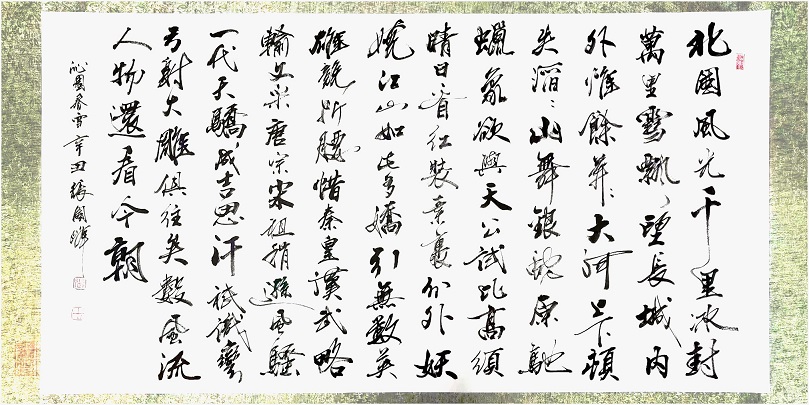 北國風光千里冰封
萬里雪飄望長城内
外惟餘莽々大河上下頓
失滔々山舞銀蛇原馳
蠟象欲與天公試比高須
晴日看紅裝素裹分外妖
嬈江山如此多嬌引無數英
雄競折腰惜秦皇漢武略
輸文采唐宗宋祖稍遜風騷
一代天驕成吉思汗祇識彎
弓射大雕俱往矣數風流
人物還看今朝
沁園春雪辛丑張